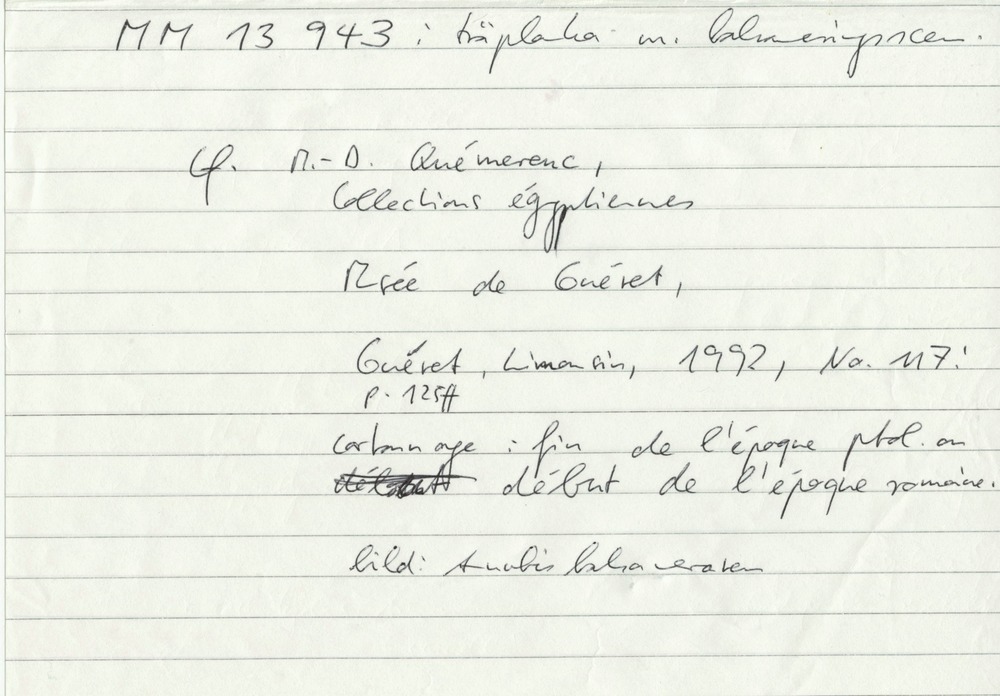 MM 13 943 : träplaka m. balsameringsscen.
Cf. M.-D. Quémerenc,
Collections égyptiennes
Musée de Guéret,
Guéret, Limousin, 1992, No. 117!
p. 125ff
cartonnage : fin de l'époque ptol. ou
début de l'époque romaine.
bild: Anubis balsameraren